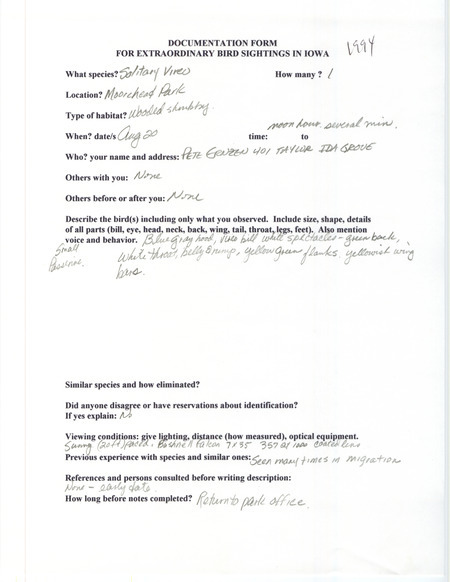 DOCUMENTATION FORM
FOR EXTRAORDINARY BIRD SIGHTINGS IN IOWA
1994
What species? Solitary Vireo How many ? 1
Location? Moorehead Park
Type of habitat? Wooded shrubby.
noon hour. several min.
When? date/s Aug 20 time: to
Who? your name and address: PETE ERNZEN 401 TAYLOR IDA GROVE
Others with you: None
Others before or after you: None
Describe the bird(s) including only what you observed. Include size, shape, details
of all parts (bill, eye, head, neck, back, wing, tail, throat, legs, feet). Also mention
voice and behavior. Blue gray hood, vireo bill white spectacles - green back,
Small
Passerine.
White throat, belly & rump, yellow green flanks, yellowish wing
bars.
Similar species and how eliminated?
Did anyone disagree or have reservations about identification?
If yes explain: No
Viewing conditions: give lighting, distance (how measured), optical equipment.
Sunny (20ft) paced. Bushnell Falcon 7x35 357 at 1000 coated lens
Previous experience with species and similar ones: Seen many times in migration
References and persons consulted before writing description:
None - early date.
How long before notes completed? Return to park office.